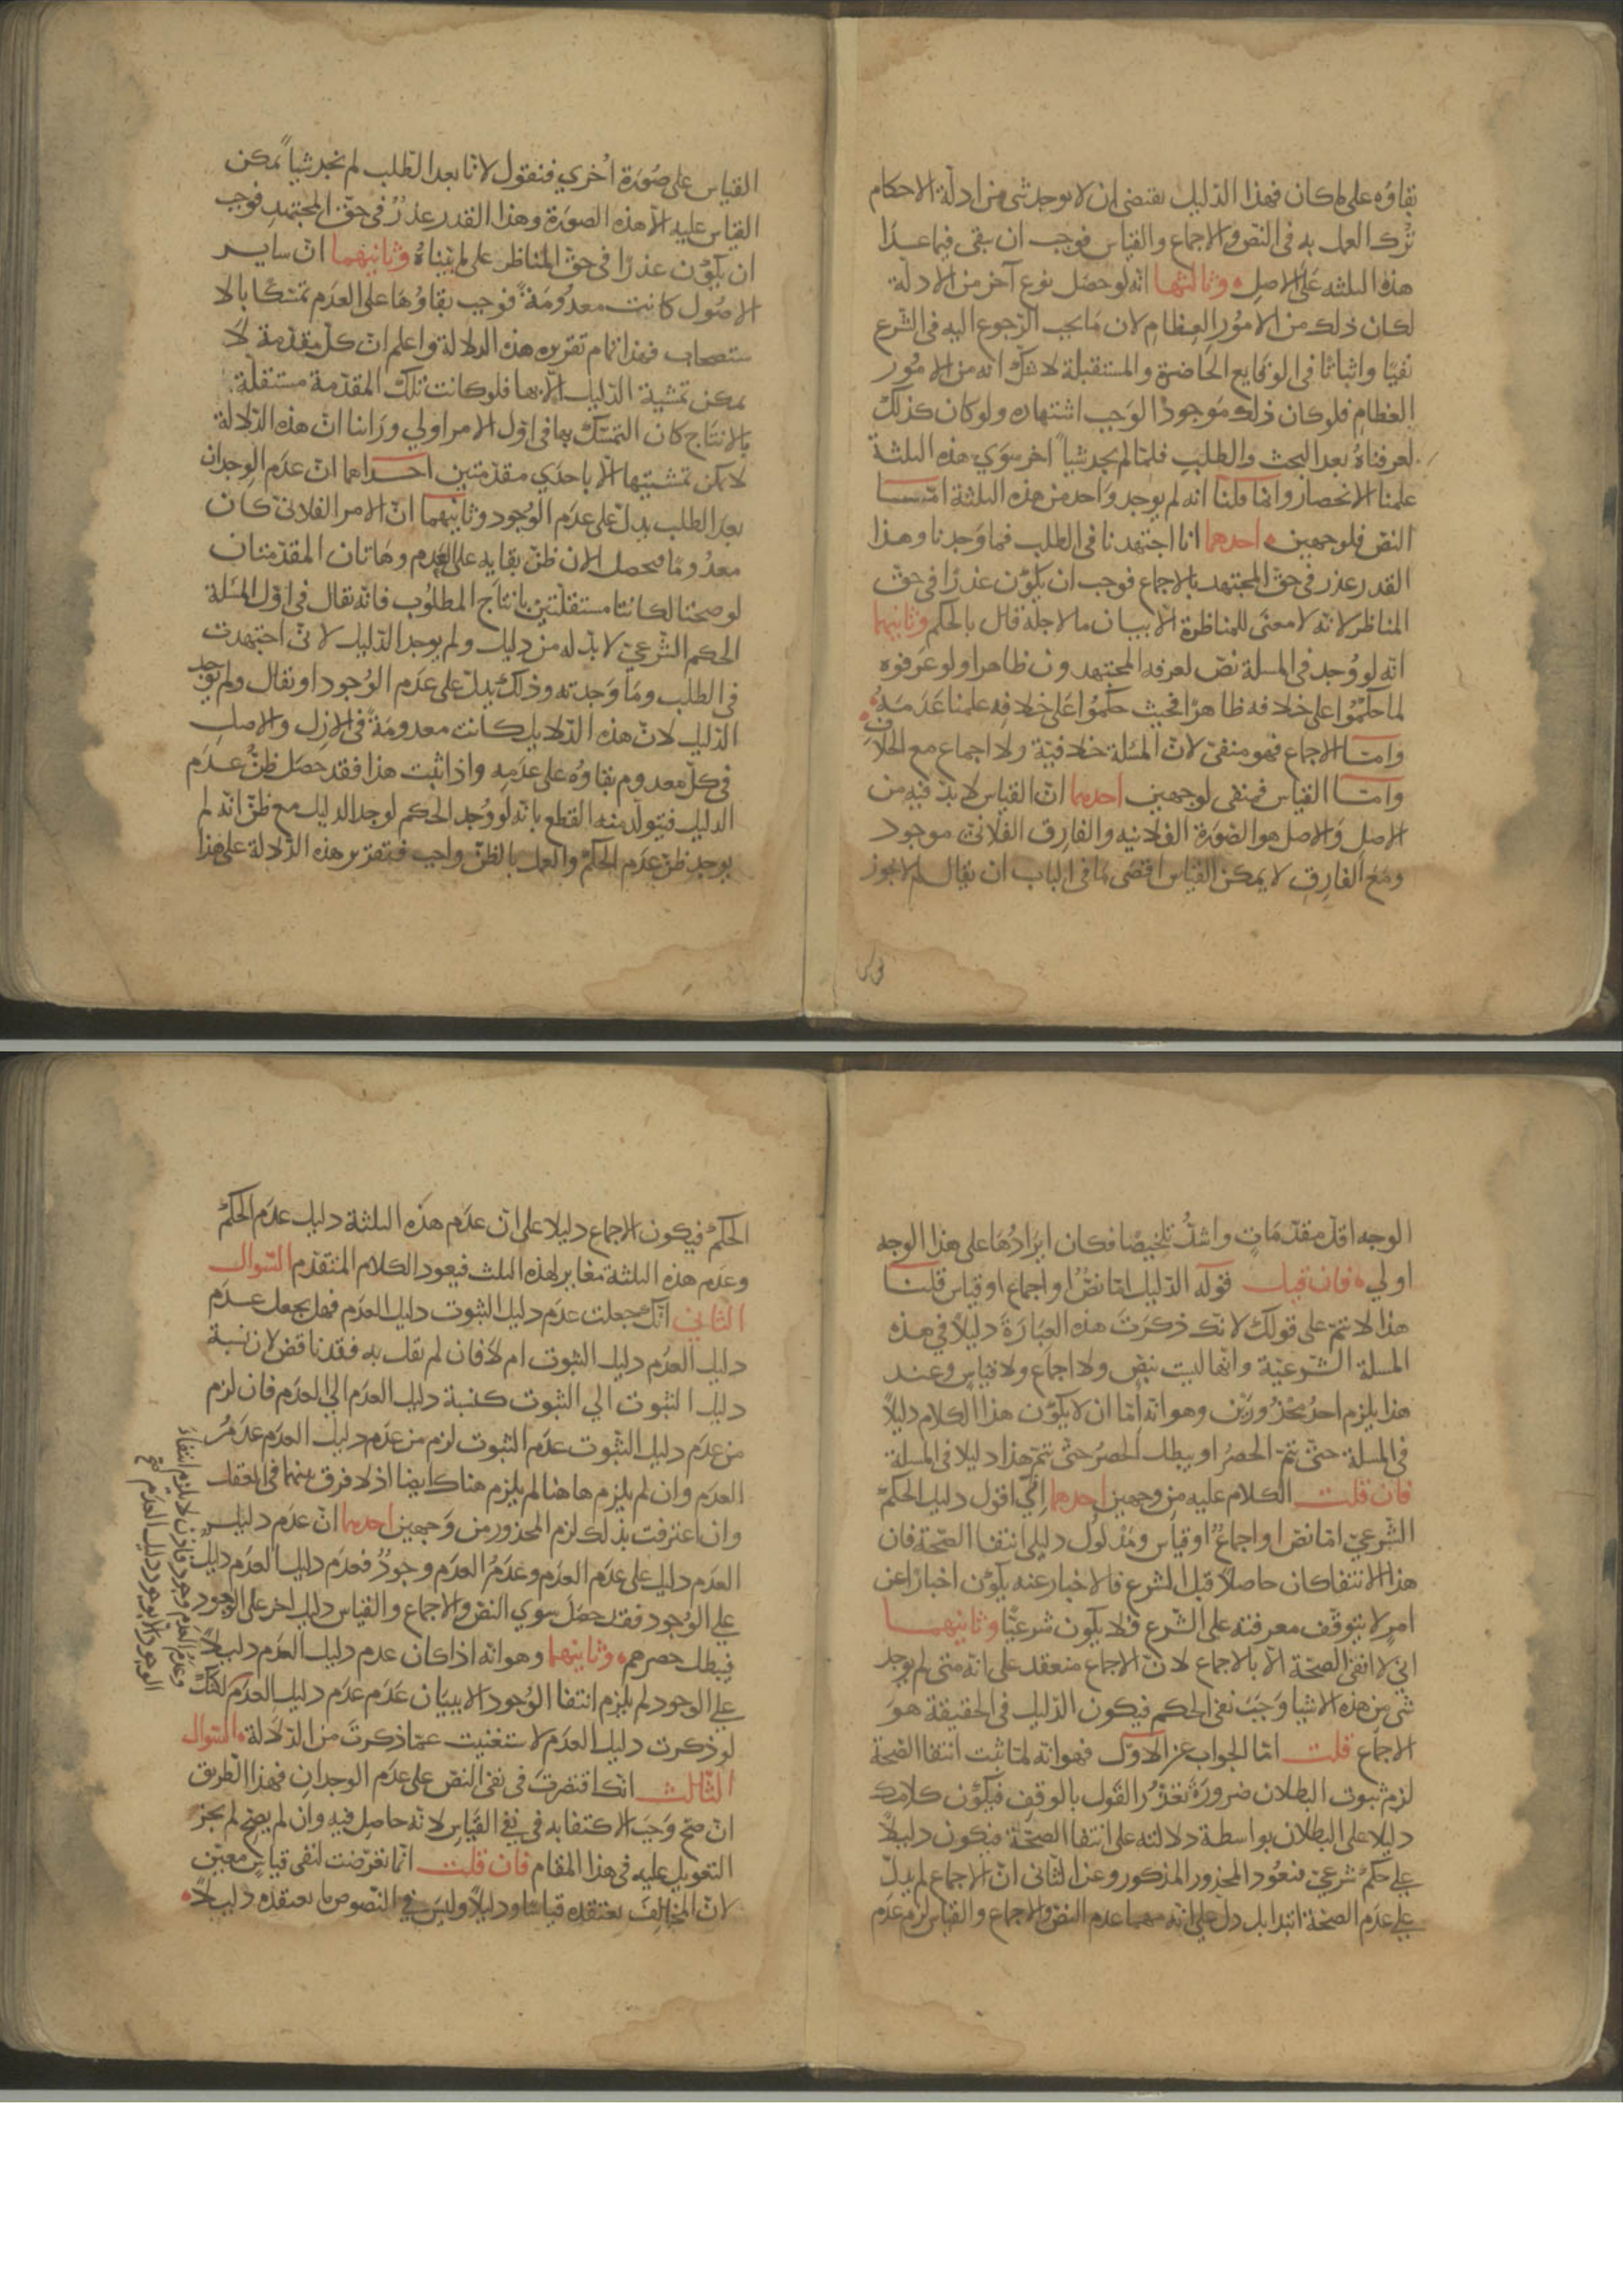 بقاؤه على ما كان فهذا الدليل يقتضى ان لا يوجد شى من ادلة الاحكام
ترك العمل به فى النص والاجماع والقياس فوجب ان يبقى فيما عدا
هذه الثلثه على الاصل وثالثها انه لو حصل نوع آخر من الادلة
لكان ذلك من الامور العظام لان ما يجب الرجوع اليه فى الشرع
نفيًا واثباتًا فى الوقايع الحاضرة والمستقبلة لا شك انه من الامور
العظام فلو كان ذلك موجودًا لوجب اشتهاره ولو كان كذلك
لعرفناه بعد البحث والطلب فلما لم يجد شيأ آخر سوى هذه الثلثة
علمنا الانحصار وانما قلنا انه لم يوجد واحد من هذه الثلثة اما
النص فلوجهين احدهما انا اجتهدنا فى الطلب فما وجدنا وهذا
القدر عذر فى حق المجتهد بالاجماع فوجب ان يكون عذرًا فى حق
المناظر لانه لا معنى للمناظرة الا بيان ما لاجله قال بالحكم وثانيهما
انه لو وجد فى المسلة نص لعرفه المجتهدون ظاهرا ولو عرفوه
لما حكموا على خلافه ظاهرًا فحيث حكموا على خلافه علمنا عدمه
واما الاجماع فهو منفى لان المسلة خلافية ولا اجماع مع الخلاف
واما القياس فمنفى لوجهين احدهما ان القياس لا بد فيه من
الاصل والاصل هو الصورة الفلانيه والفارق الفلانى موجود
ومع الفارق لا يمكن القياس اقصى ما فى الباب ان يقال لم لا يجوز
القياس على صورة اخرى فنقول لانا بعد الطلب لم نجد شيأ يمكن
القياس عليه الا هذه الصورة وهذا القدر عذر فى حق المجتهد فوجب
ان يكون عذرًا فى حق المناظر على ما بيناه وثانيهما ان ساير
الاصول كانت معدومة فوجب بقاؤها على العدم تمسكا بالا
ستصحاب فهذا تمام تقرير هذه الدلالة واعلم ان كل مقدمة لا
يمكن تمشية الدليل الا بها فلو كانت تلك المقدمة مستقلة
بالانتاج كان التمسك بها فى اول الامر اولى وراينا ان هذه الدلالة
لا يمكن تمشيتها الا باحدى مقدمتين احداهما ان عدم الوجدان
بعد الطلب يدل على عدم الوجود وثانيهما ان الامر الفلانى كان
معدومًا فيحصل الان ظن بقايه على العدم وهاتان المقدمتان
لو صحتا لكانتا مستقلتين بانتاج المطلوب فانه يقال فى اول المسلة
الحكم الشرعى لا بد له من دليل ولم يوجد الدليل لانى اجتهدت
فى الطلب وما وجدته وذلك يدل على عدم الوجود او يقال ولم يوجد
الدليل لان هذه الدلايل كانت معدومة فى الازل والاصل
فى كل معدوم بقاوه على عدمه واذا ثبت هذا فقد حصل ظن عدم
الدليل فيتولد منه القطع بانه لو وجد الحكم لوجد الدليل مع ظن انه لم
يوجد ظن عدم الحكم والعمل بالظن واجب فتقرير هذه الدلالة على هذا
الوجه اقل مقدمات واشد تلخيصًا فكان ايرادها على هذا الوجه
اولى فان قيل قوله الدليل اما نص او اجماع او قياس قلنا
هذا لا يتم على قولك لانك ذكرت هذه العبارة دليلاً فى هذه
المسلة الشرعية وانها ليت بنص ولا اجماع ولا قياس وعند
هذا يلزم احد محذورين وهو انه اما ان لا يكون هذا الكلام دليلاً
فى المسلة حتى يتم الحصر او يبطل الحصر حتى يتم هذا دليلا فى المسلة
فان قلت الكلام عليه من وجهين احدهما انى اقول دليل الحكم
الشرعى اما نص او اجماع او قياس ومدلول دليلى انتفا الصحة فان
هذا الانتفا كان حاصلاً قبل الشرع فالاخبار عنه يكون اخبارًا عن
امر لا يتوقف معرفته على الشرع فلا يكون شرعيًا وثانيهما
انى لا انفى الصحة الا بالاجماع لان الاجماع منعقد على انه متى لم يوجد
شى من هذه الاشيا وجب نفى الحكم فيكون الدليل فى الحقيقة هو
الاجماع قلت اما الجواب عن الاول فهو انه لما ثبت انتفا الصحة
لزم ثبوت البطلان ضرورة تعذر القول بالوقف فيكون كلامك
دليلا على البطلان بواسطة دلالته على انتفا الصحة فيكون دليلاً
على حكم شرعى فيعود المحذور المذكور وعن الثانى ان الاجماع لم يدل
على عدم الصحة ابتدا بل دل على انه مهما عدم النص والاجماع والقياس لزم عدم
الحكم فيكون الاجماع دليلا على ان عدم هذه الثلثة دليل عدم الحكم
وعدم هذه الثلثة مغاير لهذه الثلث فيعود الكلام المتقدم السوال
الثانى انك جعلت عدم دليل الثبوت دليل العدم فهل يجعل عدم
دليل العدم دليل الثبوت ام لا فان لم نقل به فقد ناقض لان نسبة
دليل الثبوت الى الثبوت كنسبة دليل العدم الى العدم فان لزم
من عدم دليل الثبوت عدم الثبوت لزم من عدم دليل العدم عدم
العدم وان لم يلزم هاهنا لم يلزم هناك ايضا اذ لا فرق بينهما فى العقل
وان اعترفت بذلك لزم المحذور من وجهين احدهما ان عدم دليل
العدم دليل على عدم العدم وعدم العدم وجود فعدم دليل العدم دليل
على الوجود فقد حصل سوى النص والاجماع والقياس دليل اخر على الوجود
فبطل حصرهم وثانيهما وهو انه اذا كان عدم دليل العدم دليلاً
على الوجود لم يلزم انتفا الوجود الا ببيان عدم عدم دليل العدم لكنك
لو ذكرت دليل العدم لاستغنيت عما ذكرت من الدلالة السوال
الثالث انك اقتصرت فى نفى النص على عدم الوجدان فهذا الطريق
ان صح وجب الاكتفا به فى نفى القياس لانه حاصل فيه وان لم يصح لم يجز
التعويل عليه فى هذا المقام فان قلت انما تعرضت لنفى قياس معين
لان المخالف يعتقده قياسًا ودليلاً وليس فى النصوص ما يعتقده دليلاً
وعدم العدم وجود فاذن لا يلزم انتفاء
الوجود الا بوجود دليل العدم صح